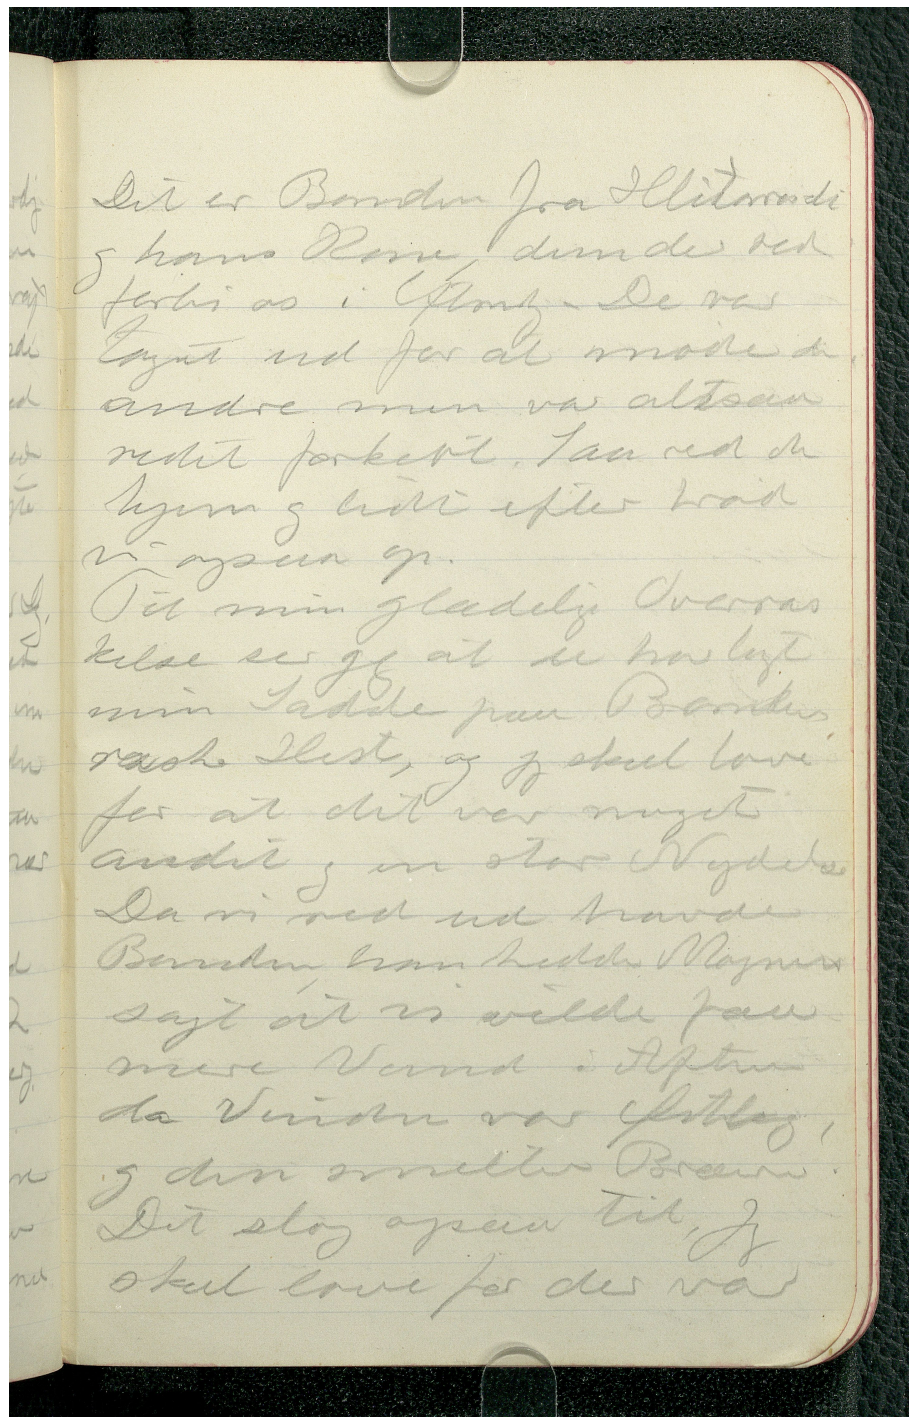 Det er Bonden fra
og hans Kone, dem der red
forbi os i De var
taget ud for at møde de
andre men var altsaa
redet forkert. Saa red de
hjem og lidt efter brød
vi ogsaa op.
Til min glædelig Overras
kelse ser jeg at de har lagt
min Saddel paa Bondens
raske Hest, og jeg skal love
for at det var noget
andet og en stor Nydelse
Da vi red ud havde
Bonden, han hedder Magnus
sagt at vi vilde faa
mere Vand i Aften
da Vinden var Østlig,
og den smelter Bræen.
Det slog ogsaa til, Jeg
skal love for der var